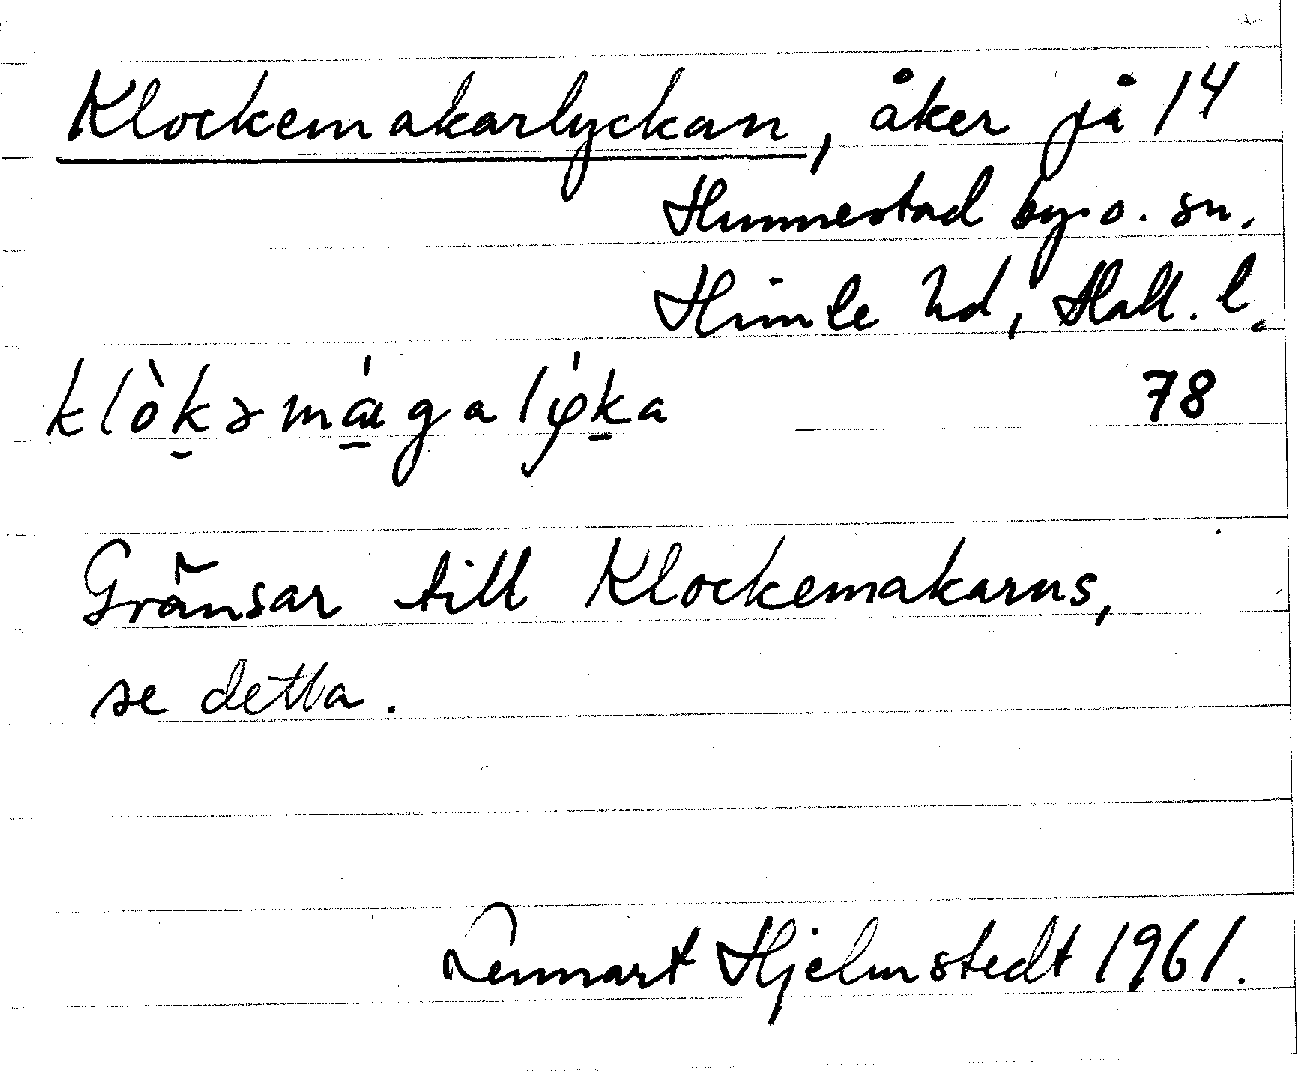 Klockemakarlyckan, åker på 14
Hunnestad by o. sn.
Himle hd, Hall. l.
klòkəmágalýka 78
Gränsar till Klockemakarns,
se detta.
Lennart Hjelmstedt 1961.